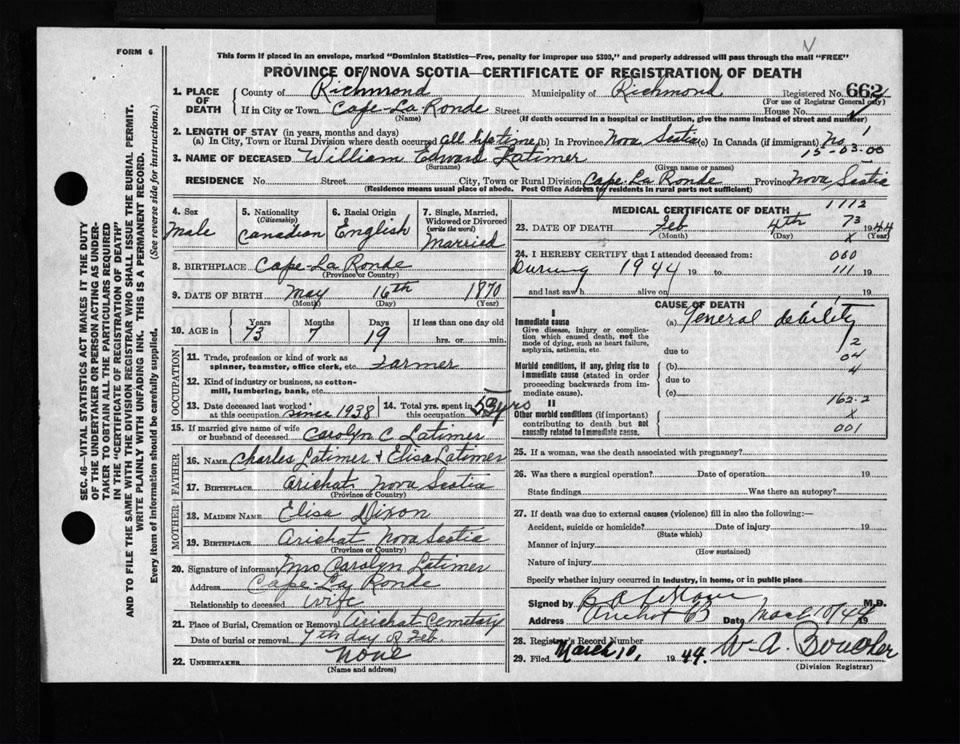 N
FORM 6
This form if placed in an envelope, marked "Dominion Statistics—Free, penalty for improper use $300," and properly addressed will pass through the mail "FREE"
PROVINCE OF NOVA SCOTIA—CERTIFICATE OF REGISTRATION OF DEATH
SEC. 46—VITAL STATISTICS ACT MAKES IT THE DUTY
OF THE UNDERTAKER OR PERSON ACTING AS UNDER-
TAKER TO OBTAIN ALL THE PARTICULARS REQUIRED
IN THE "CERTIFICATE OF REGISTRATION OF DEATH"
AND TO FILE THE SAME WITH THE DIVISION REGISTRAR WHO SHALL ISSUE THE BURIAL PERMIT.
WRITE PLAINLY WITH UNFADING INK. THIS IS A PERMANENT RECORD.
Every item of information should be carefully supplied. (See reverse side for instructions.)
1. PLACE OF DEATH County of Richmond Municipality of Richmond Registered No. 662
(For use of Registrar General only)
If in City or Town Cape-La Ronde Street House No.
(Name) (If death occurred in a hospital or institution, give the name instead of street and number)
2. LENGTH OF STAY (in years, months and days)
(a) In City, Town or Rural Division where death occurred all lifetime (b) In Province Nova Scotia (c) In Canada (if immigrant) No 1
15-03-00
3. NAME OF DECEASED William Edward Latimer
(Surname) (Given name or names)
RESIDENCE No. Street City, Town or Rural Division Cape-La Ronde Province Nova Scotia
(Residence means usual place of abode. Post Office Address for residents in rural parts not sufficient)
4. Sex Male
5. Nationality (Citizenship) Canadian
6. Racial Origin English
7. Single, Married, Widowed or Divorced (write the word) Married
8. BIRTHPLACE Cape-La Ronde
(Province or Country)
9. DATE OF BIRTH May 16th 1870
(Month) (Day) (Year)
10. AGE in Years 73 Months 7 Days 19 If less than one day old
hrs. or min.
OCCUPATION
11. Trade, profession or kind of work as
spinner, teamster, office clerk, etc. Farmer
12. Kind of industry or business, as cotton-
mill, lumbering, bank, etc.
13. Date deceased last worked at this occupation since 1938
14. Total yrs. spent in this occupation yrs
15. If married give name of wife
or husband of deceased Carolyn C. Latimer
FATHER
16. NAME Charles Latimer & Elisa Latimer
17. BIRTHPLACE Arichat Nova Scotia
(Province or Country)
MOTHER
18. MAIDEN NAME Elisa Dixon
19. BIRTHPLACE Arichat Nova Scotia
(Province or Country)
20. Signature of informant Mrs Carolyn Latimer
Address Cape-La Ronde
Relationship to deceased wife
21. Place of Burial, Cremation or Removal Arichat Cemetary
Date of burial or removal 7th day of Feb
22. UNDERTAKER None
(Name and address)
MEDICAL CERTIFICATE OF DEATH 1112
73
23. DATE OF DEATH Feb 4th 1944
(Month) (Day) X (Year)
24. I HEREBY CERTIFY that I attended deceased from: 060
During 1944 19 to 111 19
and last saw h alive on 19
CAUSE OF DEATH
I
Immediate cause (a) General debility
Give disease, injury or complica-
tion which caused death, not the
mode of dying, such as heart failure,
asphyxia, asthenia, etc.
2
due to 04
Morbid conditions, if any, giving rise to
immediate cause (stated in order
proceeding backwards from im-
mediate cause).
(b) 4
due to
(c)
II 162-2
Other morbid conditions (if important)
contributing to death but not
causally related to immediate cause.
X
001
25. If a woman, was the death associated with pregnancy?
26. Was there a surgical operation? Date of operation 19
State findings Was there an autopsy?
27. If death was due to external causes (violence) fill in also the following:—
Accident, suicide or homicide? Date of injury 19
(State which)
Manner of injury
(How sustained)
Nature of injury
Specify whether injury occurred in industry, in home, or in public place
Signed by M.D.
Address Arichat CB Date 10/44 19
28. Registrar's Record Number
29. Filed March 10, 1944. W. A. Boucher
(Division Registrar)